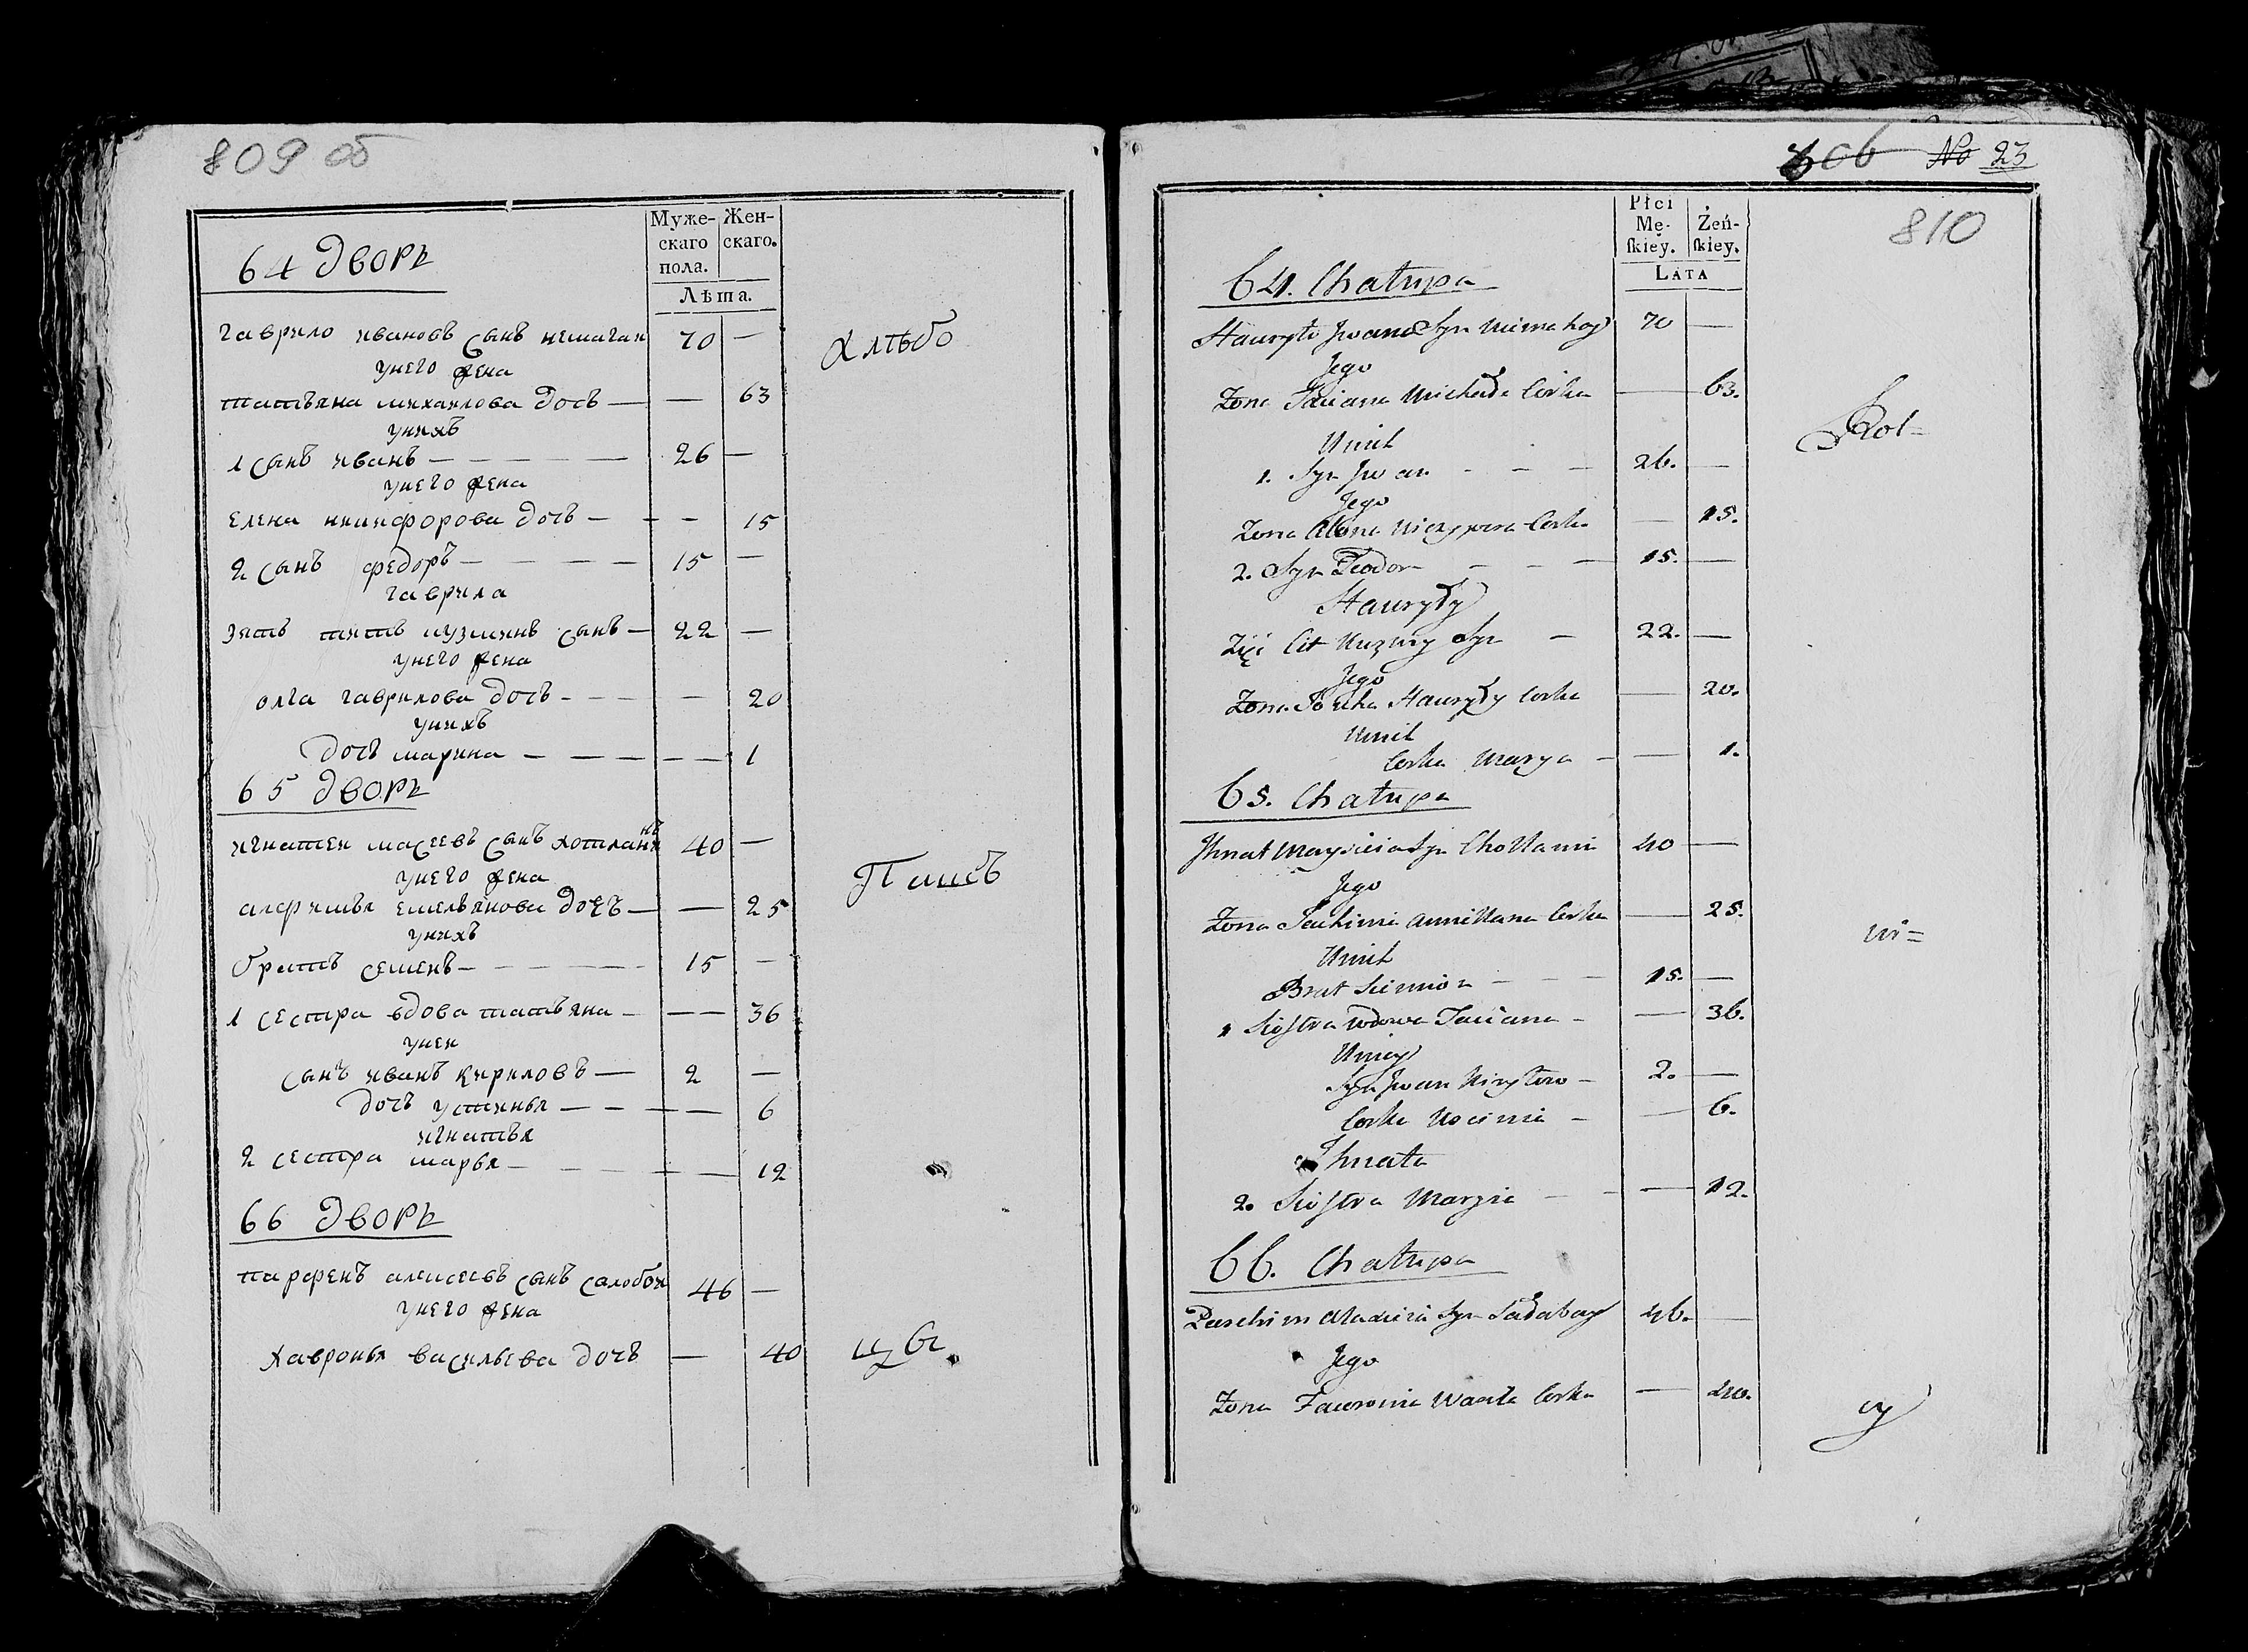 809 об
Муже-
скаго
пола.
Жен-
скаго.
Лѣта.
64 дворъ
гаврило ивановъ сынъ немагаи 70 —
унего жена
татьяна михаилова дочь — — 63
унихъ
1 сынъ иванъ — 26 —
унего жена
елена никифорова дочь — — 15
2 сынъ федоръ — 15 —
гаврила
зять титъ кузминъ сынъ — 22 —
унего жена
олга гаврилова дочь — — 20
унихъ
дочь марина — — 1
65 дворъ
игнатеи масеевъ сынъ хотлани 40 —
унего жена
емельянова дочъ — — 25
унихъ
братъ семенъ — 15 —
1 сестра вдова татьяна — — 36
унеи
сынъ иванъ кириловъ — 2 —
дочь устинья — — 6
игнатья
2 сестра марья — — 12
66 дворъ
парфенъ алексеевъ сынъ салобаи 46 —
унего жена
хавронья васильева дочь — 40
Хлѣбо
Пашъ
806 No 23
810
Płci
Mę-
ſkiey.
Żeń-
ſkiey.
LATA
64. Chatupa
Hauryło Jwana Syn Nimahay 70 —
Jego
Zona Taciana Michała Corka — 63.
Unich
1. Syn Jwan — 26. —
Jego
Zona Alona Corka — 15.
2. Syn Fiodor — 15. —
Hauryły
Zięć Cit Kuzmy Syn — 22. —
Jego
Zona Hauryły Corka — 20.
Unich
Corka Marya — — 1.
65. Chatupa
Jhnat Syn Chotlani 40 —
Jego
Zona Corka — 25.
Unich
Brat Siemion — 15. —
1 Siostra wdowa Taciana — — 36.
Uniey
Syn Jwan Kiryłow — 2. —
Corka Uscinia — — 6.
Jhnata
2. Siostra Maryia — — 12.
66. Chatupa
Syn Sałabay 46. —
Jego
Zona Corka — 40.
Rol-
ni=
cy